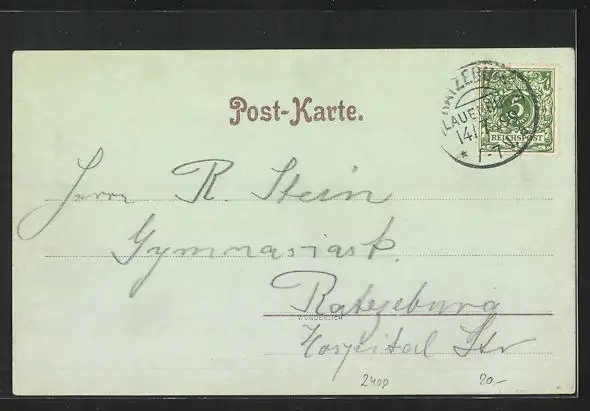 Post-Karte.
LAUENB
14/
5
REICHSPOST
Herrn R. Stein
Gymnasiast.
Ratzeburg
WUNDERLICH
Hospital Str
2400 20.-